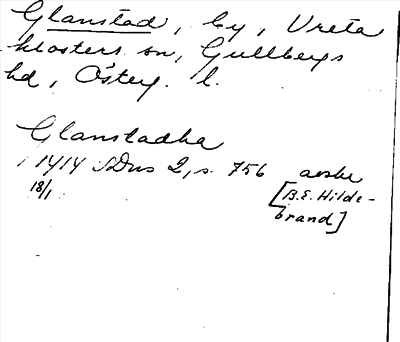 Glanstad, by, Vreta
klosters sn, Gullbergs
hd, Östg. l.
Glanstadha
1414 SDns 2, s. 756 avskr
18/1 [B.E. Hilde-
brand]